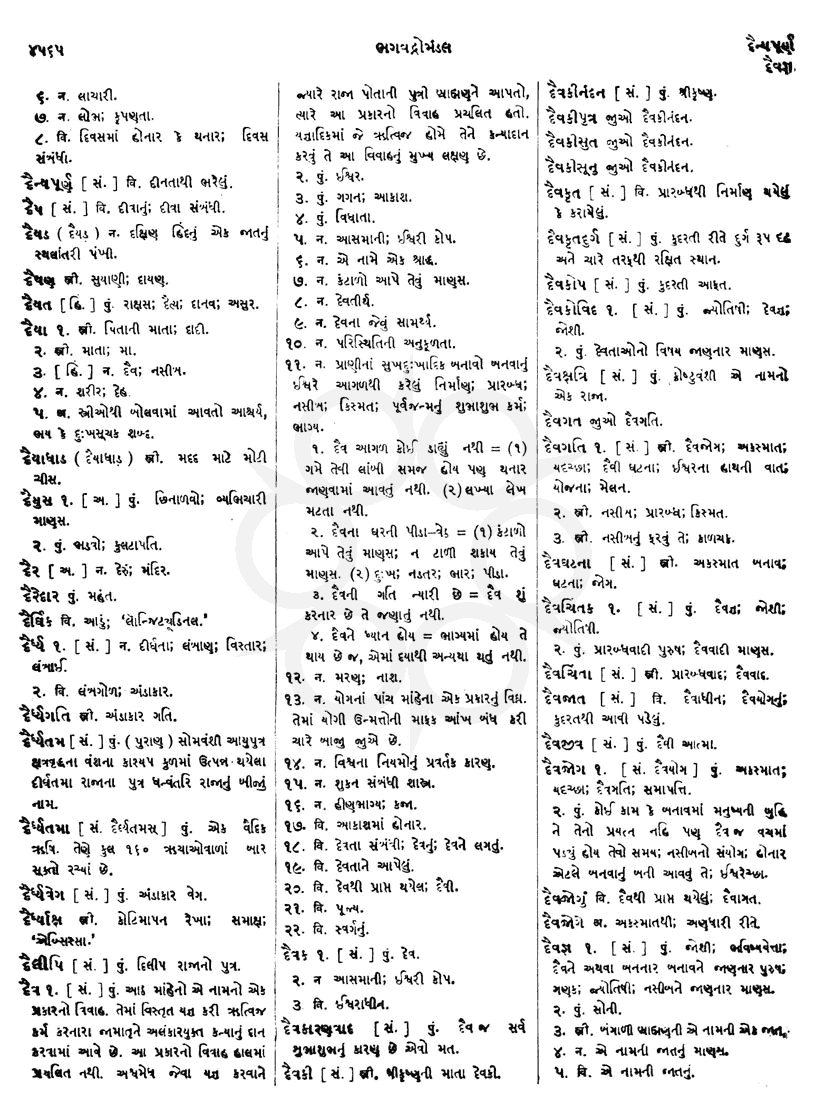 ૪૫૬૫
ભગવદ્ગોમંડલ
દૈન્યપૂર્ણ
દૈવજ્ઞ
૬. ન. લાચારી.
૭. ન. લોભ; કૃપણતા.
૮. વિ. દિવસમાં હોનાર કે થનાર; દિવસ
સંબંધી.
દૈન્યપૂર્ણ [ સં. ] વિ. દીનતાથી ભરેલું.
દૈપ [ સં. ] વિ. દીવાનું; દીવા સંબંધી.
દૈયડ ( દૈયડ઼ ) ન. દક્ષિણ હિંદનું એક જાતનું
સ્થલાંતરી પંખી.
દૈયણ સ્ત્રી. સુયાણી; દાયણ.
દૈયત [ હિં. ] પું. રાક્ષસ; દૈત્ય; દાનવ; અસુર.
દૈયા ૧. સ્ત્રી. પિતાની માતા; દાદી.
૨. સ્ત્રી. માતા; મા.
૩. [ હિં. ] ન. દૈવ; નસીબ.
૪. ન. શરીર; દેહ.
૫. અ. સ્ત્રીઓથી બોલવામાં આવતો આશ્ચર્ય,
ભય કે દુઃખસૂચક શબ્દ.
દૈયાધાડ ( દૈયાધાડ઼ ) સ્ત્રી. મદદ માટે મોટી
ચીસ.
દૈયુસ ૧. [ અ. ] પું. છિનાળવો; વ્યભિચારી
માણસ.
૨. પું. ભડવો; કુલટાપતિ.
દૈર [ અ. ] ન. દેરું; મંદિર.
દૈરેદાર પું. મહંત.
દૈર્ઘિક વિ. આડું; ‘લૉન્જિટ્યૂડિનલ.’
દૈર્ઘ્ય ૧. [ સં. ] ન. દીર્ઘતા; લંબાણ; વિસ્તાર;
લંબાઈ.
૨. વિ. લંબગોળ; અંડાકાર.
દૈર્ઘ્યગતિ સ્ત્રી. અંડાકાર ગતિ.
દૈર્ઘ્યતમ [ સં. ] પું. ( પુરાણ ) સોમવંશી આયુપુત્ર
ક્ષત્રવૃદ્ધના વંશના કાશ્યપ કુળમાં ઉત્પન્ન થયેલા
દીર્ઘતમા રાજાના પુત્ર ધન્વંતરિ રાજાનું બીજું
નામ.
દૈર્ઘ્યતમા [ સં. દૈર્ઘ્યતમસ્ ] પું. એક વૈદિક
ઋષિ. તેણે કુલ ૧૬૦ ઋચાઓવાળાં બાર
સૂક્તો રચ્યાં છે.
દૈર્ઘ્યવેગ [ સં. ] પું. અંડાકાર વેગ.
દૈર્ઘ્યાક્ષ સ્ત્રી. કોટિમાપન રેખા; સમાક્ષ;
‘એબ્સિસા.’
દૈલીપિ [ સં. ] પું. દિલીપ રાજાનો પુત્ર.
દૈવ ૧. [ સં. ] પું. આઠ માંહેનો એ નામનો એક
પ્રકારનો વિવાહ. તેમાં વિસ્તૃત યજ્ઞ કરી ઋત્વિજ
કર્મ કરનારા જામાતૃને અલંકારયુક્ત કન્યાનું દાન
કરવામાં આવે છે. આ પ્રકારનો વિવાહ હાલમાં
પ્રચલિત નથી. અશ્વમેધ જેવા યજ્ઞ કરવાને
જ્યારે રાજા પોતાની પુત્રી બ્રાહ્મણને આપતો,
ત્યારે આ પ્રકારનો વિવાહ પ્રચલિત હતો.
યજ્ઞાદિકમાં જે ઋત્વિજ હોમે તેને કન્યાદાન
કરવું તે આ વિવાહનું મુખ્ય લક્ષણ છે.
૨. પું. ઈશ્વર.
૩. પું. ગગન; આકાશ.
૪. પું. વિધાતા.
૫. ન. આસમાની; ઈશ્વરી કોપ.
૬. ન. એ નામે એક શ્રાદ્ધ.
૭. ન. કંટાળો આપે તેવું માણસ.
૮. ન. દેવતીર્થ.
૯. ન. દેવના જેવું સામર્થ્ય.
૧૦. ન. પરિસ્થિતિની અનુકૂળતા.
૧૧. ન. પ્રાણીનાં સુખદુઃખાદિક બનાવો બનવાનું
ઈશ્વરે આગળથી કરેલું નિર્માણ; પ્રારબ્ધ;
નસીબ; કિસ્મત; પૂર્વજન્મનું શુભાશુભ કર્મ;
ભાગ્ય.
૧. દૈવ આગળ કોઈ ડાહ્યું નથી = (૧)
ગમે તેવી લાંબી સમજ હોય પણ થનાર
જાણવામાં આવતું નથી. (૨) લખ્યા લેખ
મટતા નથી.
૨. દૈવના ઘરની પીડા-વેઠ = (૧) કંટાળો
આપે તેવું માણસ; ન ટાળી શકાય તેવું
માણસ. (૨) દુઃખ; નડતર; ભાર; પીડા.
૩. દૈવની ગતિ ન્યારી છે = દૈવ શું
કરનાર છે તે જણાતું નથી.
૪. દૈવને ધ્યાન હોય = ભાગ્યમાં હોય તે
થાય છે જ, એમાં દયાથી અન્યથા થતું નથી.
૧૨. ન. મરણ; નાશ.
૧૩. ન. યોગનાં પાંચ માંહેના એક પ્રકારનું વિઘ્ન.
તેમાં યોગી ઉન્મત્તોની માફક આંખ બંધ કરી
ચારે બાજુ જુએ છે.
૧૪. ન. વિશ્વના નિયમોનું પ્રવર્તક કારણ.
૧૫. ન. શુકન સંબંધી શાસ્ત્ર.
૧૬. ન. હીણુભાગ્ય; કજા.
૧૭. વિ. આકાશમાં હોનાર.
૧૮. વિ. દેવતા સંબંધી; દેવનું; દેવને લગતું.
૧૯. વિ. દેવતાને આપેલું.
૨૦. વિ. દેવથી પ્રાપ્ત થયેલ; દૈવી.
૨૧. વિ. પૂજ્ય.
૨૨. વિ. સ્વર્ગનું.
દૈવક ૧. [ સં. ] પું. દેવ.
૨. ન આસમાની; ઈશ્વરી કોપ.
૩ વિ. ઈશ્વરાધીન.
દૈવકારણવાદ [ સં. ] પું. દૈવ જ સર્વ
શુભાશુભનું કારણ છે એવો મત.
દૈવકી [ સં. ] સ્ત્રી. શ્રીકૃષ્ણની માતા દેવકી.
દૈવકીનંદન [ સં. ] પું. શ્રીકૃષ્ણ.
દૈવકીપુત્ર જુઓ દૈવકીનંદન.
દૈવકીસુત જુઓ દૈવકીનંદન.
દૈવકીસૂનુ જુઓ દૈવકીનંદન.
દૈવકૃત [ સં. ] વિ. પ્રારબ્ધથી નિર્માણ થયેલું
કે કરાયેલું.
દૈવકૃતદુર્ગ [ સં. ] પું. કુદરતી રીતે દુર્ગ રૂપ દૃઢ
અને ચારે તરફથી રક્ષિત સ્થાન.
દૈવકોપ [ સં. ] પું. કુદરતી આફત.
દૈવકોવિદ ૧. [ સં. ] પું. જ્યોતિષી; દૈવજ્ઞ;
જોશી.
૨. પું. દેવતાઓનો વિષય જાણનાર માણસ.
દૈવક્ષત્રિ [ સં. ] પું. ક્રોષ્ટુવંશી એ નામનો
એક રાજા.
દૈવગત જુઓ દૈવગતિ.
દૈવગતિ ૧. [ સં. ] સ્ત્રી. દૈવજોગ; અકસ્માત;
યદૃચ્છા; દૈવી ઘટના; ઈશ્વરના હાથની વાત;
યોજના; મેલન.
૨. સ્ત્રી. નસીબ; પ્રારબ્ધ; કિસ્મત.
૩. સ્ત્રી. નસીબનું ફરવું તે; કાળચક્ર.
દૈવઘટના [ સં. ] સ્ત્રી. અકસ્માત બનાવ;
ઘટના; જોગ.
દૈવચિંતક ૧. [ સં. ] પું. દૈવજ્ઞ; જોશી;
જ્યોતિષી.
૨. પું. પ્રારબ્ધવાદી પુરુષ; દૈવવાદી માણસ.
દૈવચિંતા [ સં. ] સ્ત્રી. પ્રારબ્ધવાદ; દૈવવાદ.
દૈવજાત [ સં. ] વિ. દૈવાધીન; દૈવયોગનું;
કુદરતથી આવી પડેલું.
દૈવજીવ [ સં. ] પું. દૈવી આત્મા.
દૈવજોગ ૧. [ સં. દૈવયોગ ] પું. અકસ્માત;
યદૃચ્છા; દૈવગતિ; સમાપત્તિ.
૨. પું. કોઈ કામ કે બનાવમાં મનુષ્યની બુદ્ધિ
ને તેનો પ્રયત્ન નહિ પણ દૈવ જ વચમાં
પડ્યું હોય તેવો સમય; નસીબનો સંયોગ; હોનાર
એટલે બનવાનું બની આવવું તે; ઈશ્વરેચ્છા.
દૈવજોગું વિ. દૈવથી પ્રાપ્ત થયેલું; દૈવાગત.
દૈવજોગે અ. અકસ્માતથી; અણધારી રીતે.
દૈવજ્ઞ ૧. [ સં. ] પું. જોશી; ભવિષ્યવેત્તા;
દૈવને અથવા બનનાર બનાવને જાણનાર પુરુષ;
ગણક; જ્યોતિષી; નસીબને જાણનાર માણસ.
૨. પું. સોની.
૩. સ્ત્રી. બંગાળી બ્રાહ્મણની એ નામની એક જાત.
૪. ન. એ નામની જાતનું માણસ.
૫. વિ. એ નામની જાતનું.